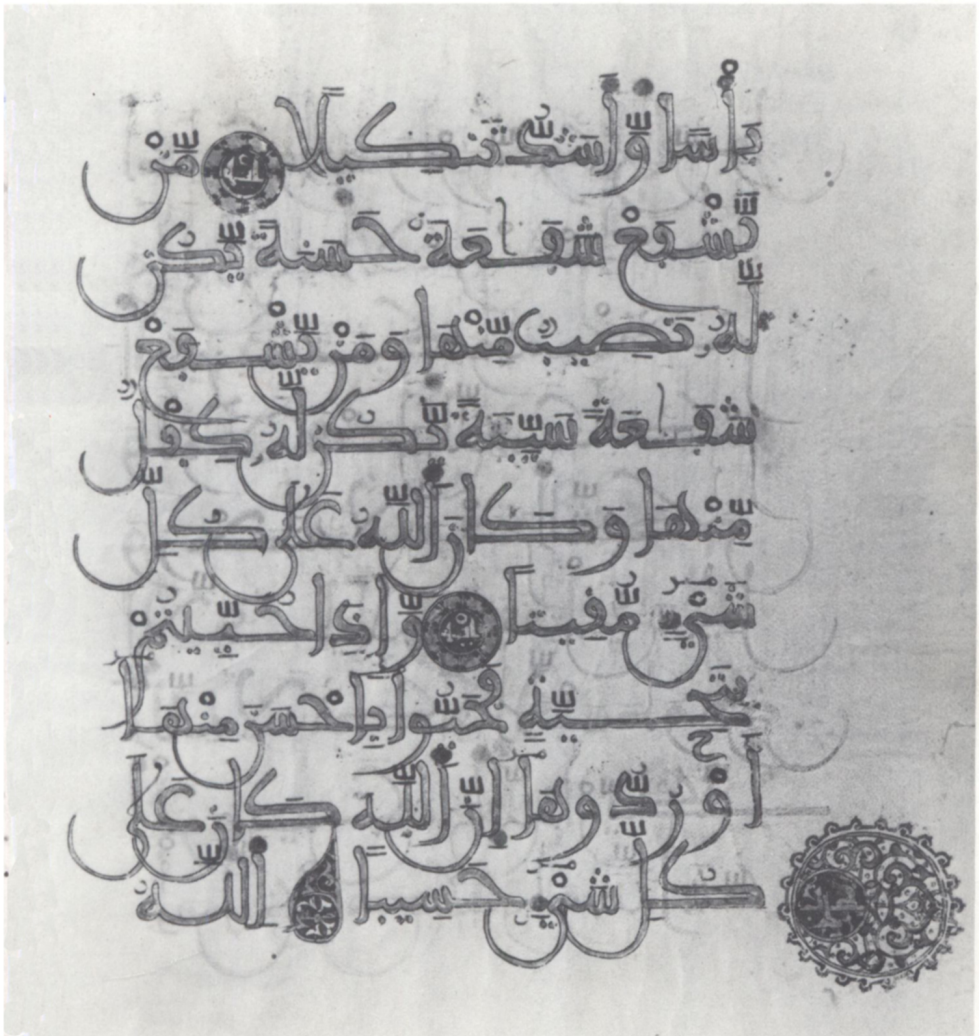 بَأْسًا وَأَشَدُّ تَنكِيلًا مَّنْ
يَّشْفَعْ شَفَٰعَةً حَسَنَةً يَّكُن
لَّهُۥ نَصِيبٌ مِّنْهَا وَمَنْ يَّشْفَعْ
شَفَٰعَةً سَيِّئَةً يَّكُن لَّهُۥ كِفْلٌ
مِّنْهَا وَكَانَ اللَّهُ عَلَىٰ كُلِّ
شَيْءٍ مُّقِيتًا وَّإِذَا حُيِّيتُمْ
بِتَحِيَّةٍ فَحَيُّوا بِأَحْسَنَ مِنْهَا
أَوْ رُدُّوهَا إِنَّ اللَّهَ كَانَ عَلَىٰ
كُلِّ شَيْءٍ حَسِيبًا اللَّهُ